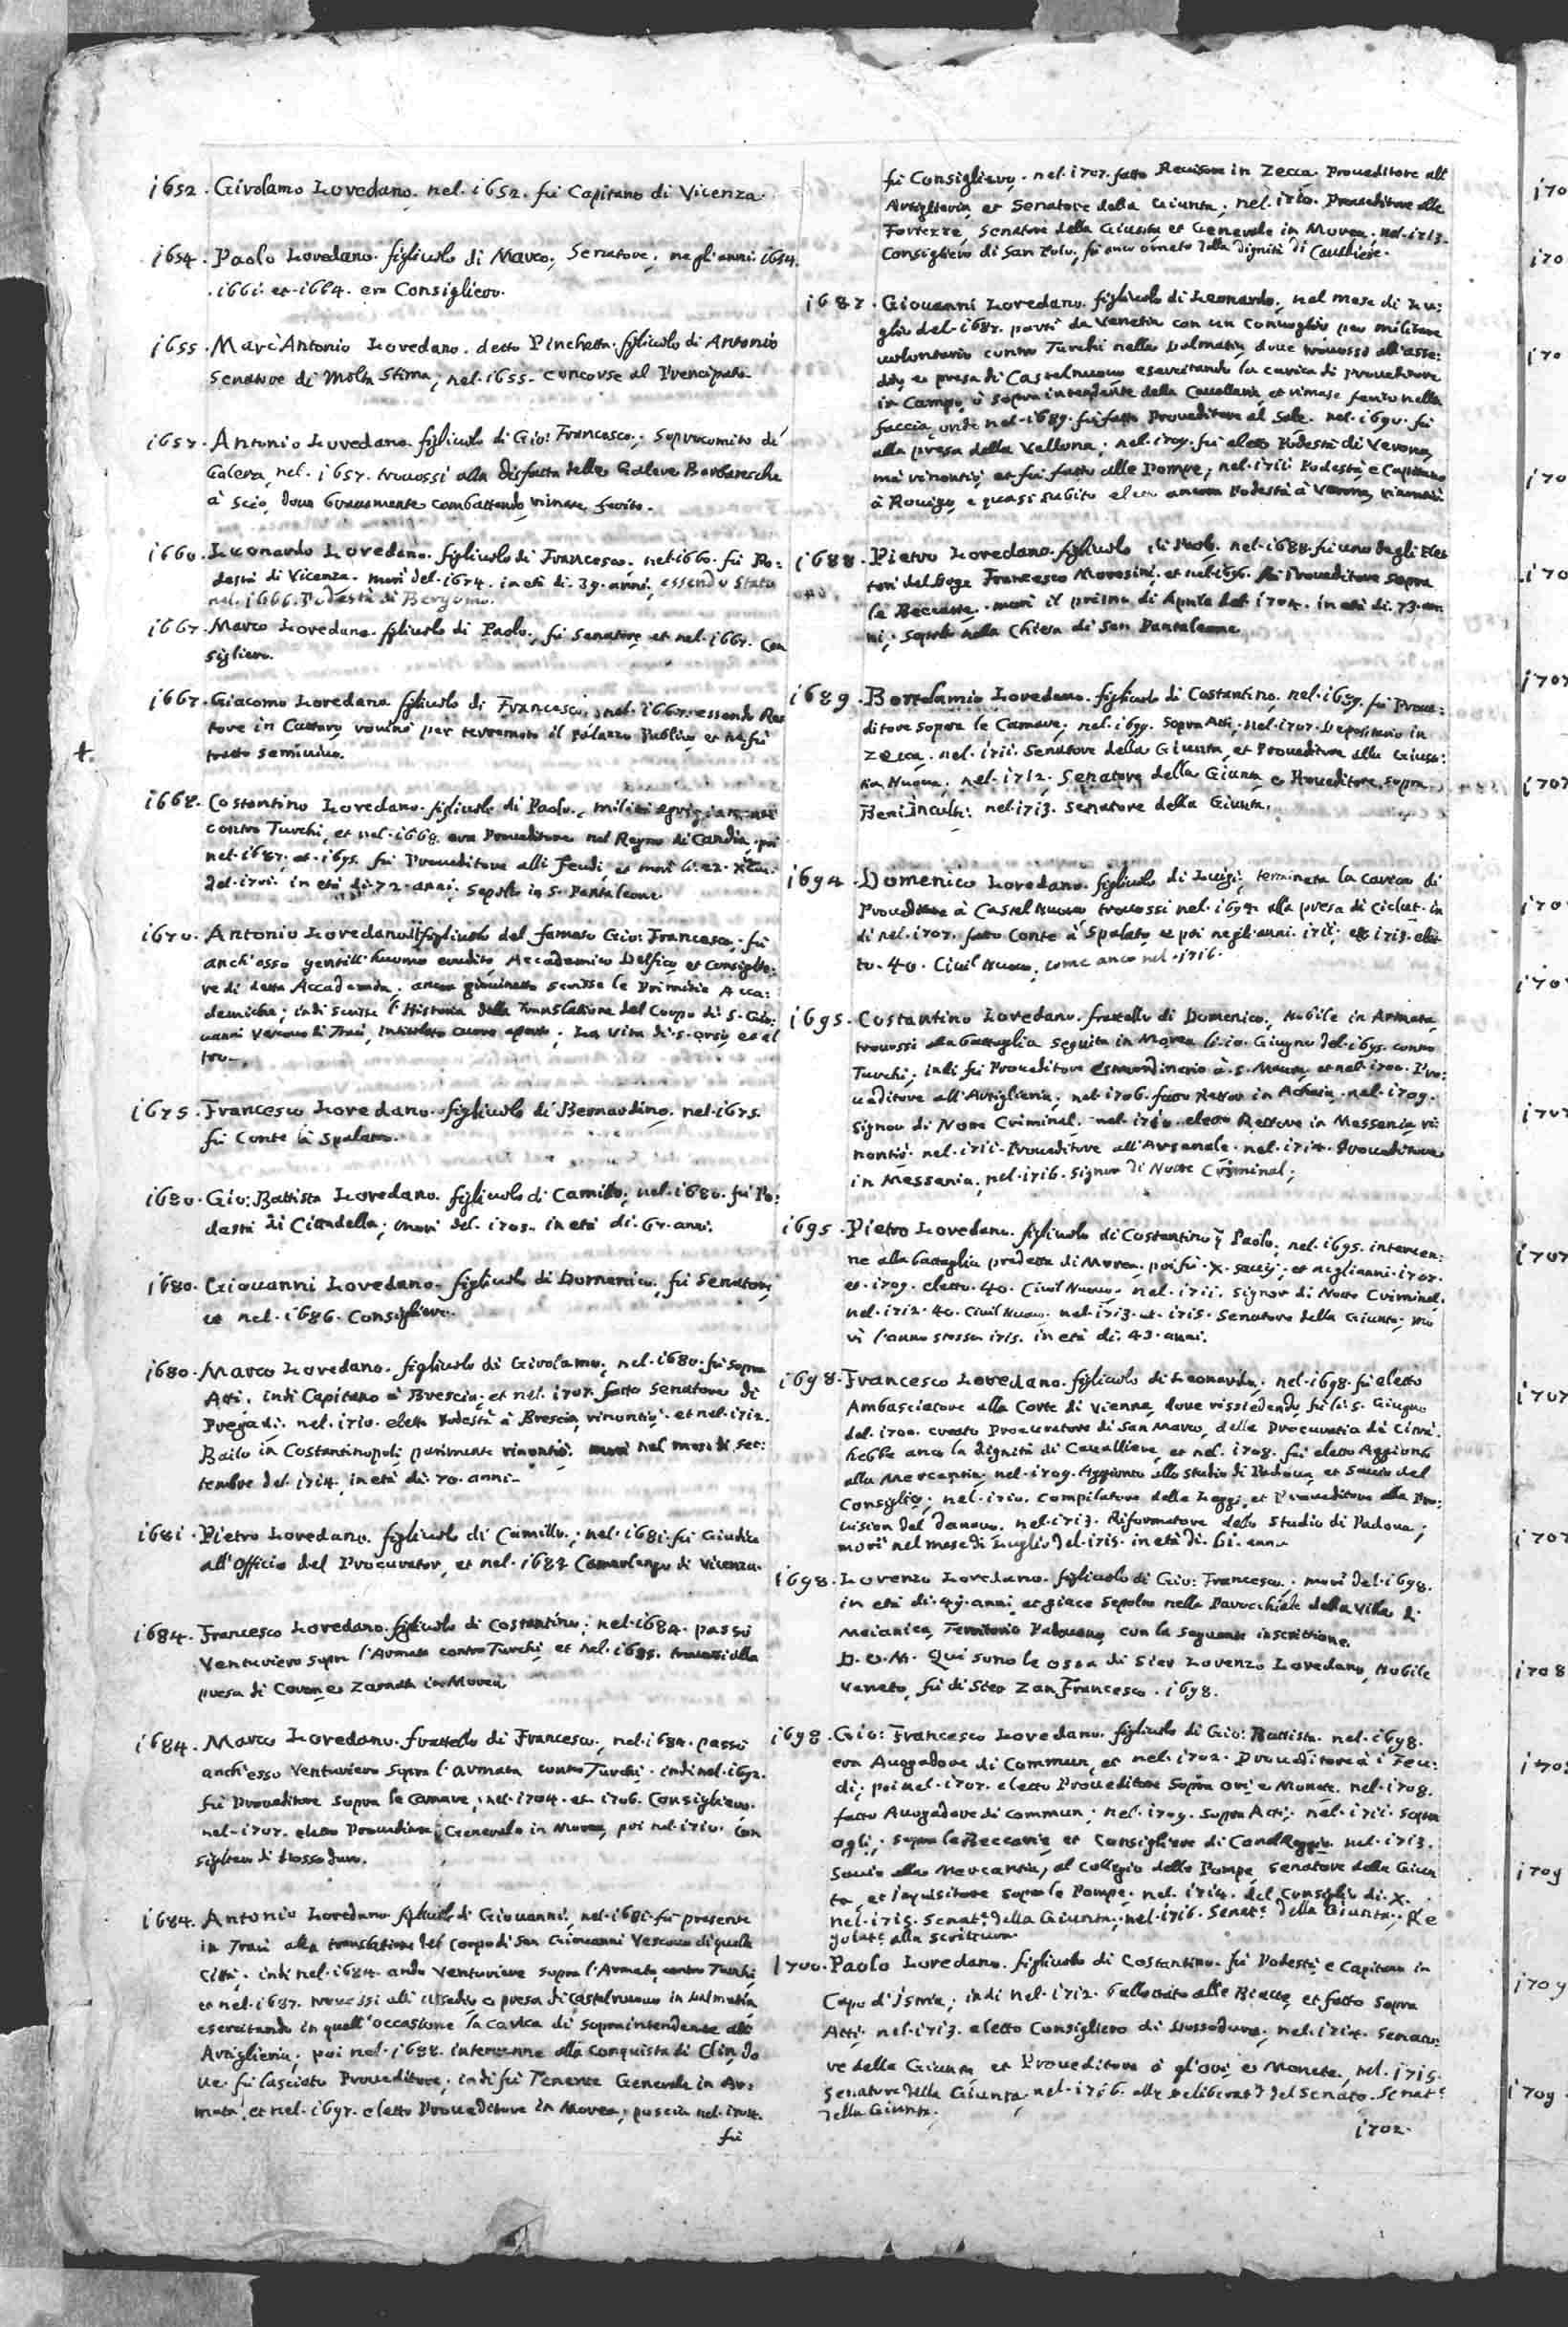 1652. Girolamo Loredano. nel. 1652. fù Capitano di Vicenza.
1654. Paolo Loredano. figliuolo di Marco, Senatore, negl'anni. 1654.
.1661. et. 1664. era Consigliero.
1655. Marc'Antonio Loredano. detto Pinchetta. figliuolo di Antonio
Senatore di molta stima, nel. 1655. concorse al Prencipato.
1657. Antonio Loredano. figliuolo di Gio: Francesco, Sopracomito di
Galera, nel. 1657. trouossi alla disfatta delle Galere Barbaresche
à Scio, doue brauamente combattendo rimase ferito.
1660. Leonardo Loredano. figliuolo di Francesco. nel. 1660. fù Po:
destà di Vicenza. morì del. 1674. in età di. 39. anni, essendo stato
nel. 1666. Podestà di Bergamo.
1667. Marco Loredano. figliuolo di Paolo, fù Senatore et nel. 1667. Con
sigliero.
1667. Giacomo Loredano figliuolo di Francesco, nel. 1667. essendo Ret
tore in Cattaro rouinò per terremoto il Palazzo Publico, et ne fù
tratto semiuiuo.
1668. Costantino Loredano. figliuolo di Paolo, militò
contro Turchi, et nel. 1668. era Proueditore nel Regno di Candia, poi
nel. 1687. et. 1695. fù Proueditore alli Feudi, et morì li. 22. Xbre.
del. 1701. in età di. 72. anni. Sepolto in S. Pantaleone.
1670. Antonio Loredano figliuolo del famoso Gio: Francesco, fù
anch'esso gentill'huomo erudito Accademico Delfico et Consiglie:
re di detta Accademia, ancor giouinetto scrisse le Primitie Acca:
demiche; indi scrisse l'Historia della Translatione del Corpo di S. Gio:
uanni Vescouo di Traù, intitolato cuore aperto. La Vita di S. Orso, et al
tro.
1675. Francesco Loredano. figliuolo di Bernardino, nel. 1675.
fù Conte à Spalatro.
1680. Gio: Battista Loredano. figliuolo di Camillo, nel. 1680. fù Po:
destà di Cittadella, morì del. 1703. in età di. 67. anni.
1680. Giouanni Loredano. figliuolo di Domenico, fù Senatore,
et nel. 1686. Consigliero.
1680. Marco Loredano. figliuolo di Girolamo, nel. 1680. fù sopra
Atti. indi Capitano à Brescia, et nel. 1707. fatto Senatore di
Pregadi. nel. 1710. eletto Podestà à Brescia, rinontiò. et nel. 1712.
Bailo in Costantinopoli, parimente rinontiò. morì nel mese di Set:
tembre del. 1714. in età di. 70. anni.
1681. Pietro Loredano. figliuolo di Camillo, nel. 1681. fù Giudice
all'Officio del Procurator, et nel. 1684. Camerlengo di Vicenza.
1684. Francesco Loredano. figliuolo di Costantino, nel. 1684. passò
Venturiero sopra l'Armata contro Turchi, et nel. 1685. trouossi alla
presa di Coron, e Zarnata in Morea.
1684. Marco Loredano. fratello di Francesco, nel. 1684. passò
anch'esso Venturiero sopra l'armata contro Turchi. indi nel. 1692.
fù Proueditore sopra le camare, nel. 1704. et. 1706. Consigliero.
nel. 1707. eletto Proueditore Generale in Morea, poi nel. 1710. Con
sigliero di Dossoduro.
1684. Antonio Loredano. figliuolo di Giouanni, nel. 1681. fù presente
in Traù alla translatione del corpo di San Giouanni Vescouo di quella
Città. indi nel. 1684. andò Venturiere sopra l'Armata contro Turchi,
et nel. 1687. trouossi all'assedio e presa di Castelnuouo in Dalmatia,
esercitando in quell'occasione la carica di sopraintendente all'
Artiglieria, poi nel. 1688. interuenne alla conquista di Clin, do
ue fù lasciato Proueditore, indi fù Tenente Generale in Ar:
mata, et nel. 1697. eletto Proueditore in Morea, poscia nel. 1704.
fù
fù Consigliero. nel. 1707. fatto Reuisore in Zecca. Proueditore all'
Artiglieria, et Senatore della Giunta, nel. 1710. Proueditore alle
Fortezze, Senatore della Giunta et Generale in Morea. nel. 1713.
Consigliero di San Polo, fù anco ornato della dignità di Caualliere.
1687. Giouanni Loredano. figliuolo di Leonardo, nel mese di Lu:
glio del. 1687. partì da Venetia con un conuoglio per militare
uolontario contro Turchi nella Dalmatia, doue trouossi all'asse:
dio, e presa di Castelnuouo esercitando la carica di Proueditore
in Campo, ò sopraintendente della Caualleria, et rimase ferito nella
faccia, onde nel. 1689. fù fatto Proueditore al Sale. nel. 1690. fù
alla presa della Vallona, nel. 1709. fù eletto Podestà di Verona,
mà rinontiò, et fù fatto alle Pompe, nel. 1711. Podestà e Capitano
à Rouigo, e quasi subito eletto ancora Podestà à Verona, rinontiò.
1688. Pietro Loredano. figliuolo di Paolo. nel. 1688. fù uno degli Elet
tori del Doge Francesco Morosini, et nel. 1696. fù Proueditore sopra
le Beccarie. morì il primo di Aprile del. 1704. in età di. 73. an
ni, sepolto nella Chiesa di San Pantaleone.
1689. Bortolamio Loredano. figliuolo di Costantino, nel. 1689. fù Proue:
ditore sopra le Camare, nel. 1699. sopra Atti, nel. 1707. Depositario in
Zecca. nel. 1711. Senatore della Giunta, et Proueditore alla Giusti:
tia Nuoua, nel. 1712. Senatore della Giunta e Proueditore sopra
Beni Inculti. nel. 1713. Senatore della Giunta.
1694. Domenico Loredano. figliuolo di Luigi, terminata la carica di
Proueditore à Castel Nuouo trouossi nel. 1694. alla presa di Ciclut. in
di nel. 1707. fatto Conte à Spalato, et poi negli anni. 1711. et. 1713. elet
to. 40. Ciuil Nuouo, come anco nel. 1716.
1695. Costantino Loredano. fratello di Domenico, Nobile in Armata,
trouossi alla battaglia seguita in Morea li. 10. Giugno del. 1695. contro
Turchi, indi fù Proueditore estraordinario à S. Maura, et nel. 1700. Pro:
ueditore all'Artiglieria, nel. 1706. fatto Rettor in Achaia, nel. 1709.
signor di Notte Criminal. nel. 1710. eletto Rettore in Messenia ri:
nontiò. nel. 1711. Proueditore all'Arsenale. nel. 1714. Proueditore
in Messania, nel. 1716. signor di Notte Criminal;
1695. Pietro Loredano. figliuolo di Costantino q Paolo, nel. 1695. interuen:
ne alla battaglia predetta di Morea, poi fù. X. sauij, et negli anni. 1707.
et. 1709. eletto. 40. Ciuil Nuouo. nel. 1711. signor di Notte Criminal.
nel. 1712. 40. Ciuil Nuouo, nel. 1713. et. 1715. Senatore della Giunta. mo
rì l'anno stesso 1715. in età di. 43. anni.
1698. Francesco Loredano. figliuolo di Leonardo, nel. 1698. fù eletto
Ambasciatore alla Corte di Vienna, doue rissiedendo, fù li. 5. Giugno
del. 1700. creato Procuratore di San Marco, della Procuratia de Citrà.
hebbe anco la dignità di Caualliere, et nel. 1708. fù eletto Aggionto
alla Mercantia. nel. 1709. Aggionto allo studio di Padoua, et Sauio del
Consiglio; nel. 1710. Compilatore delle Leggi, et Proueditore alla Pro:
uision del danaro. nel. 1713. Riformatore dello Studio di Padoua;
morì nel mese di Luglio del. 1715. in età di. 61. anno
1698. Lorenzo Loredano. figliuolo di Gio: Francesco, morì del. 1698.
in età di. 49. anni, et giace sepolto nella Parocchiale della Villa di
Meianica, Territorio Padouano, con la seguente inscrittione.
D. O. M. Qui sono le ossa di Sier Lorenzo Loredano, Nobile
Veneto, fù di Sier Zan Francesco. 1698.
1698. Gio: Francesco Loredano. figliuolo di Gio: Battista. nel. 1698.
era Auogadore di Commun, et nel. 1702. Proueditore à i Feu:
di; poi nel. 1707. eletto Proueditore sopra Ori e Monete. nel. 1708.
fatto Auogadore di Commun, nel. 1709. sopra Atti, nel. 1711. sopra
ogli, sopra le Beccarie, et Consigliere di Canareggio. nel. 1713.
Sauio alla Mercantia, al collegio delle Pompe, Senatore della Giun
ta, et inquisitore sopra le Pompe, nel. 1714. del Consiglio di. X.
nel. 1715. Senat.e della Giunta, nel. 1716. Senat.e della Giunta, Re
golat.e alla scrittura.
1700. Paolo Loredano. figliuolo di Costantino. fù Podestà e Capitano in
Capo d'Istria; indi nel. 1712. ballottato alle Biaue, et fatto sopra
Atti, nel. 1713. eletto Consigliero di Dossoduro, nel. 1714. Senato:
re della Giunta, et Proueditore à gl'Ori e Monete, nel. 1715.
Senatore della Giunta, nel. 1716. alle del Senato. Senat.e
della Giunta.
1702.